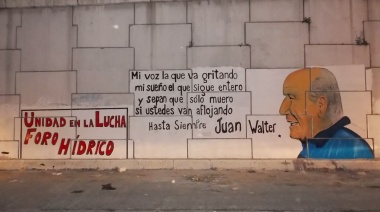 UNIDAD EN LA LUCHA
FORO HÍDRICO
Mi voz la que va gritando
mi sueño el que sigue entero
y sepan que sólo muero
si ustedes van aflojando
Hasta Siempre Juan Walter